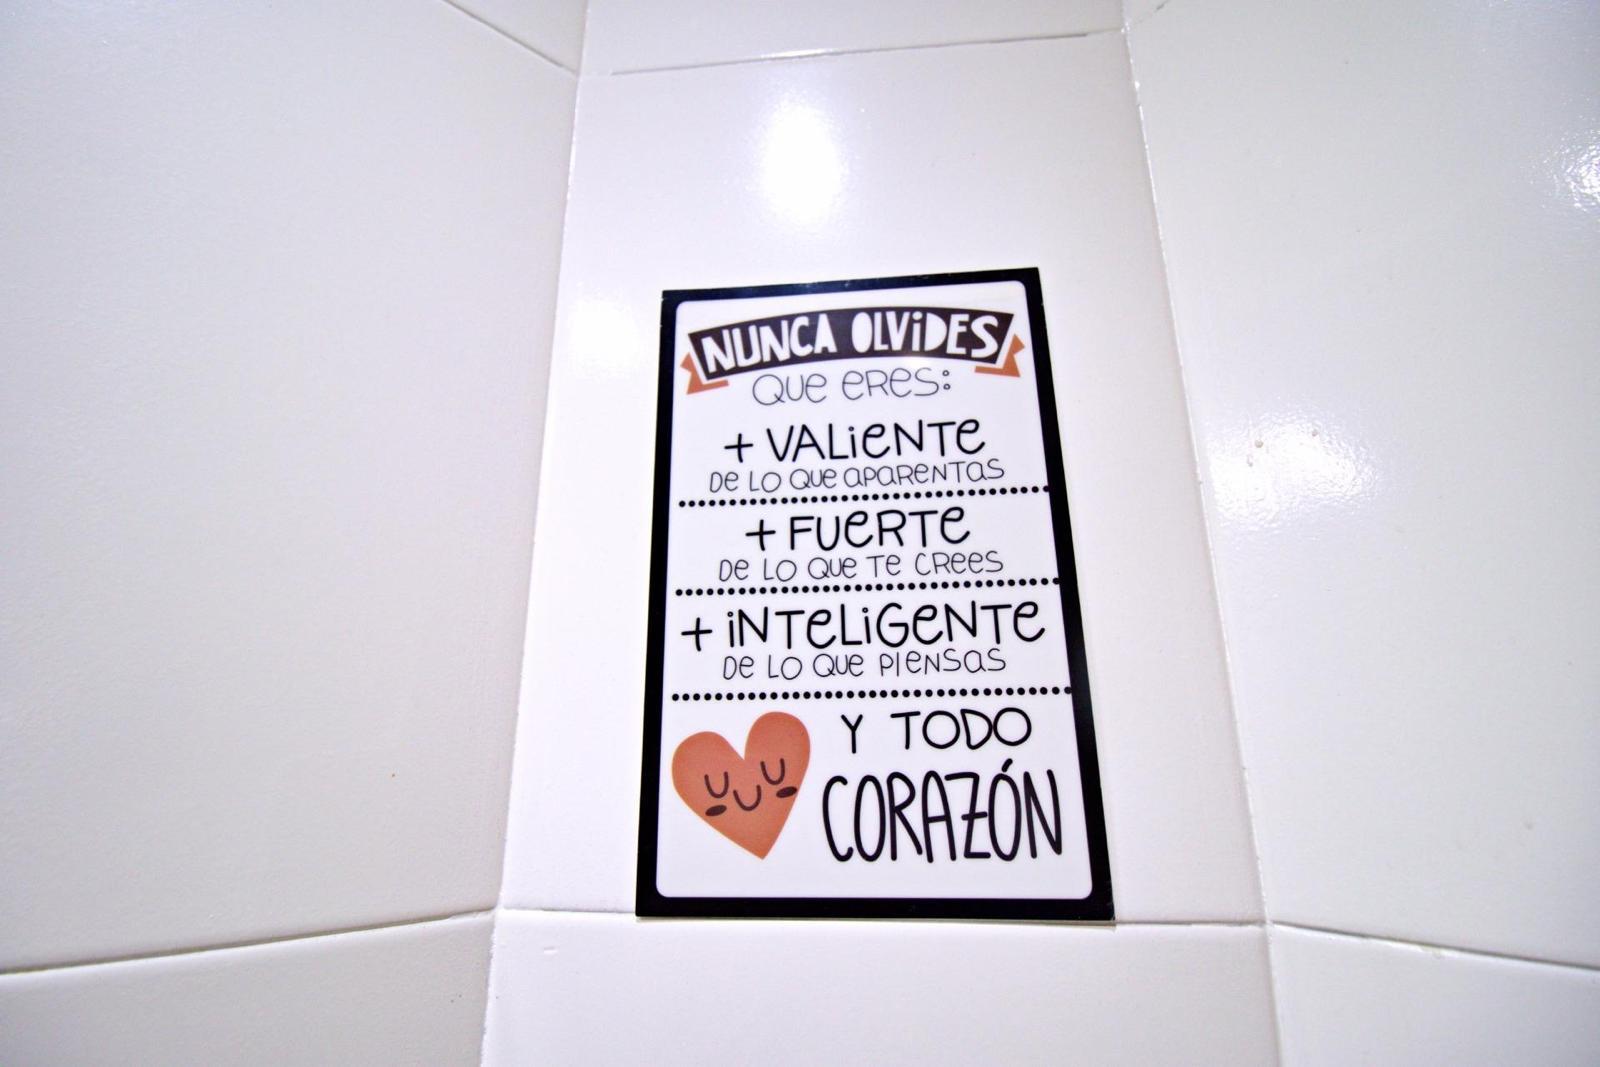 NUNCA OLViDES
QUE ERES:
+ VALiENTE
DE LO QUE APARENTAS
+ FUERTE
DE LO QUE TE CREES
+ iNTELiGENTE
DE LO QUE PIENSAS
Y TODO
CORAZÓN